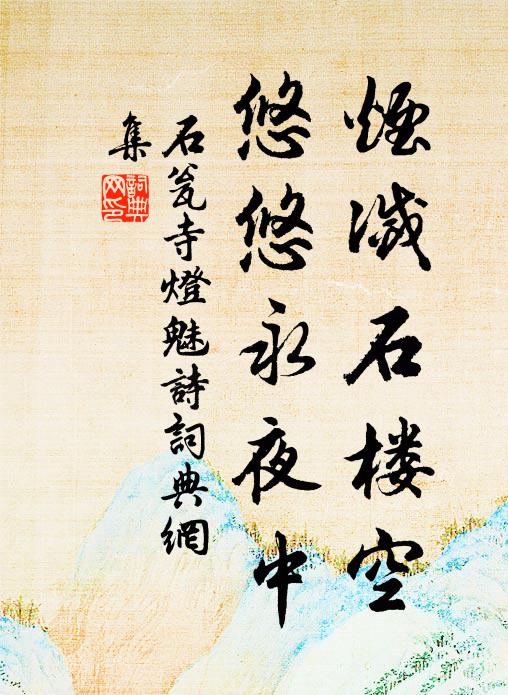 煙滅石楼空
悠悠永夜中
石瓮寺燈魅詩詞典網
集
詞典網印